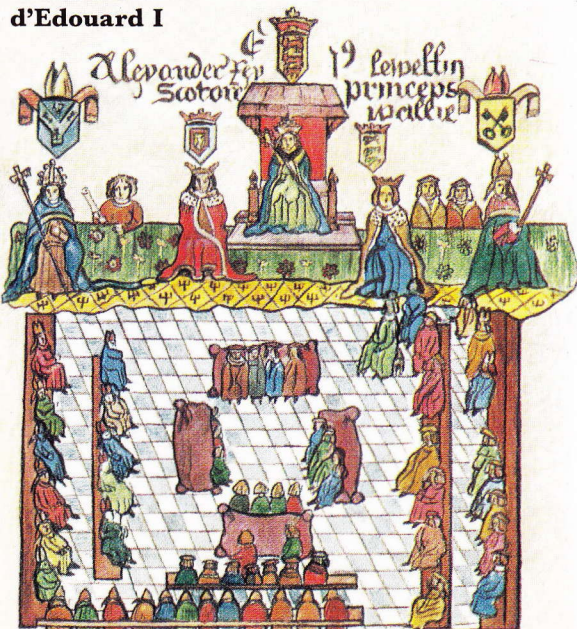 d'Edouard I
Alexander Rex
Scotore
lewellin
princeps
wallie